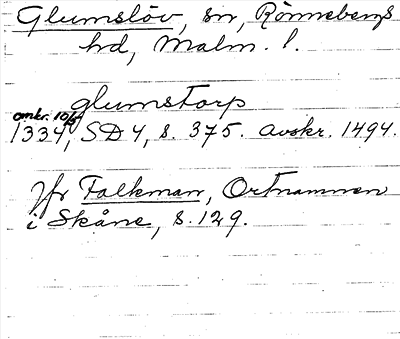 Glumslöv, sn, Rönnebergs
hd, Malm. l.
glumstorp
omkr. 10/5
1334, SD 4, s. 375. avskr. 1494.
Jfr Falkman, Ortnamnen
i Skåne, s. 129.